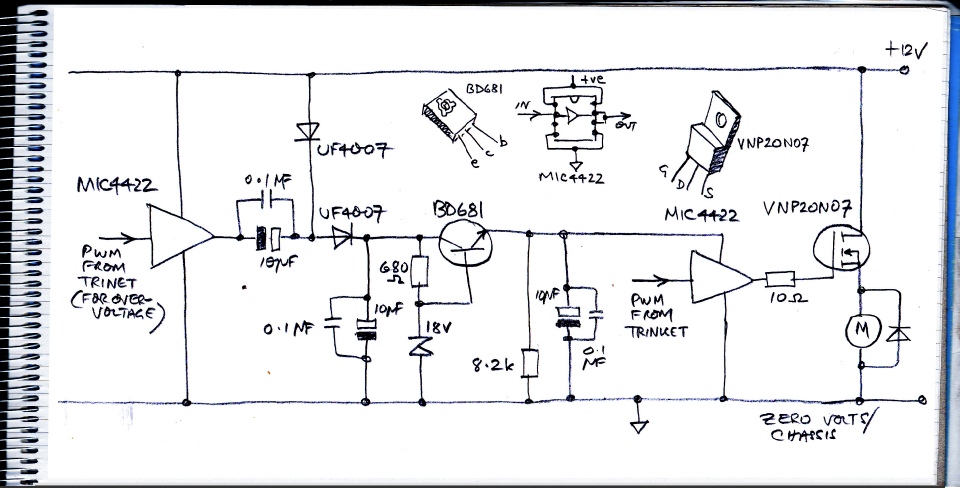 +12V
BD681
+ve
IN
OUT
b
c
e
MIC4422
VNP20N07
G
D
S
UF4007
MIC4422
0.1 MF
UF4007
BD681
MIC4422
VNP20N07
10µF
PWM
FROM
TRINET
(FOR OVER-
VOLTAGE)
680
Ω
10µF
0.1 MF
18V
8.2k
10µF
0.1
MF
PWM
FROM
TRINKET
10Ω
M
ZERO VOLTS/
CHASSIS